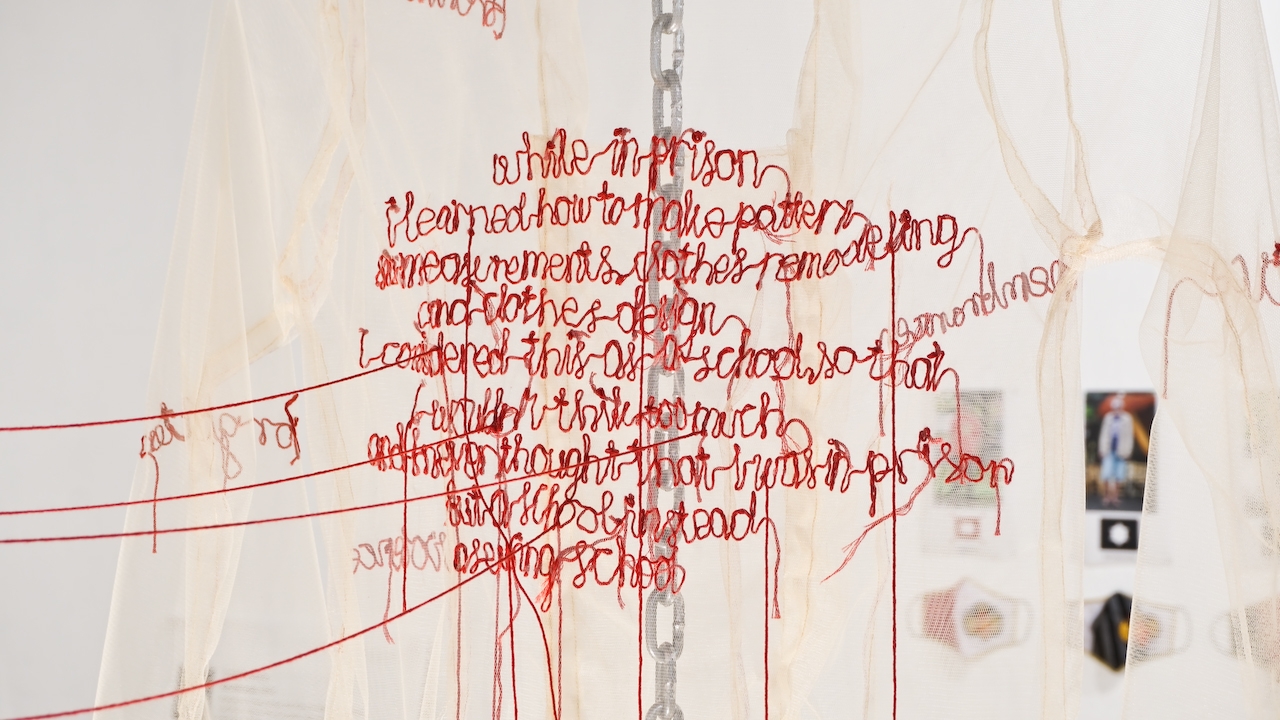 while in prison
i learned how to make pattern
measurements, clothes remodeling
and clothes design
I considered this as a school, so that
I wouldn't think too much
and never thought that I was in prison
but a school instead
a sewing school
for get
violence